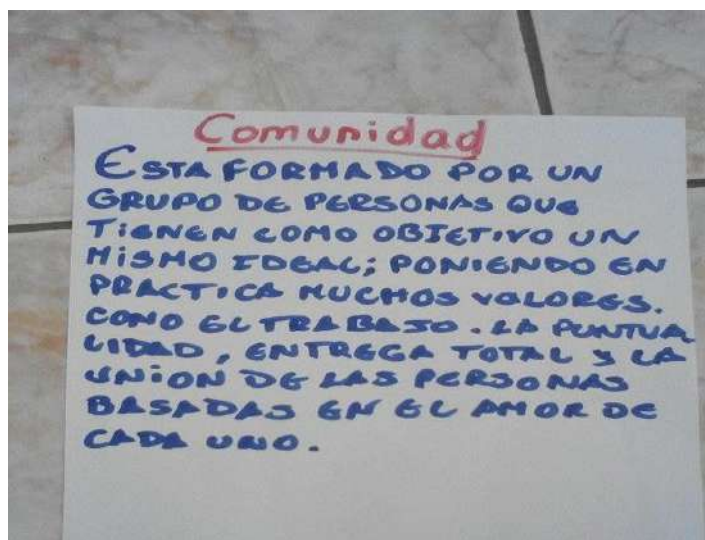 Comunidad
ESTA FORMADO POR UN
GRUPO DE PERSONAS QUE
TiENEN COMO OBJETIVO UN
MiSMO IDEAL; PONIENDO EN
PRACTICA MUCHOS VALORES.
COMO EL TRABAJO. LA PUNTUA
LIDAD, ENTREGA TOTAL Y LA
UNiON DE LAS PERSONAS
BASADAS EN EL AMOR DE
CADA UNO.